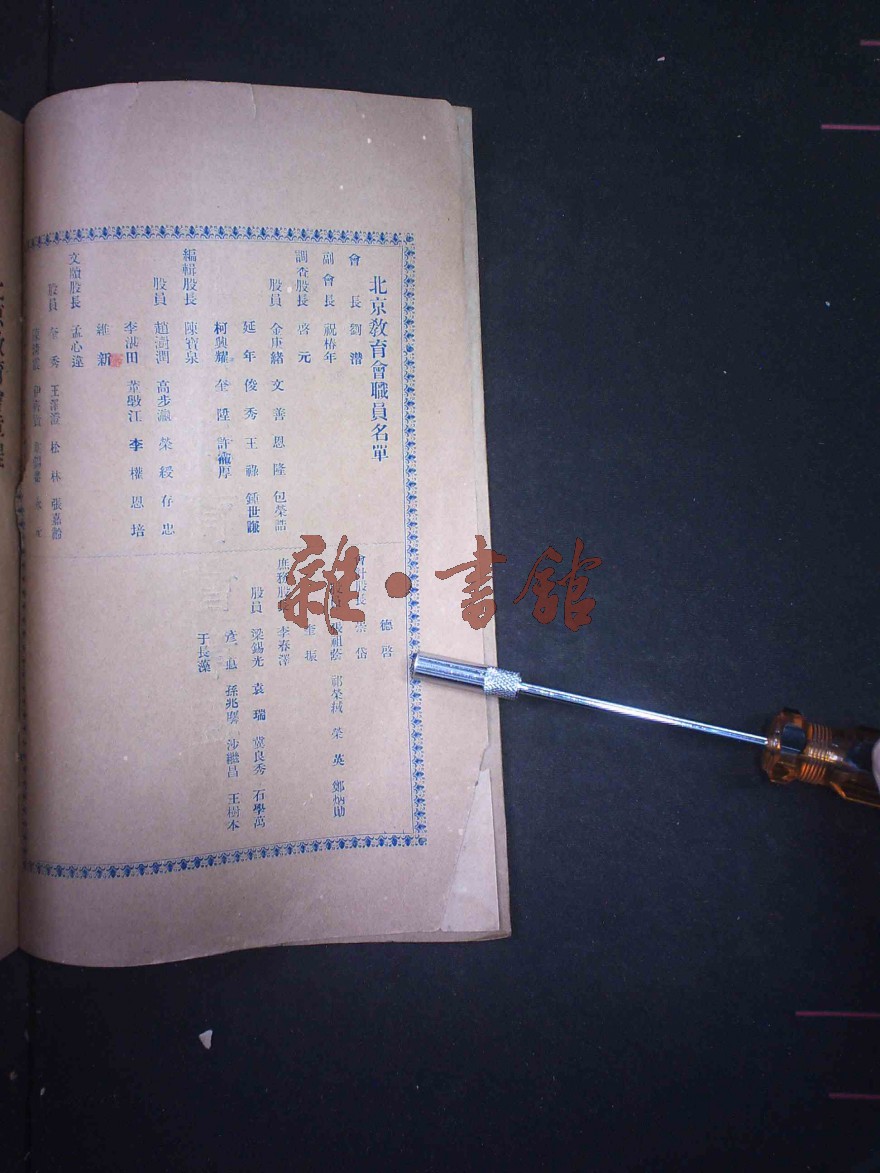 北京教育會職員名單
會長 劉潛
副會長 祝椿年
調查股長 啓元
股員 金庚緒 文善 恩隆 包榮誥
延年 俊秀 王祿 鍾世謙
柯興耀 奎陞 許 厚
編輯股長 陳寶泉
股員 趙澍潤 高步瀛 榮綬 存忠
李湛田 董毓江 李權 恩培
維新
文牘股長 孟心遠
股員 奎秀 王 松林 張嘉
德啓
會計股長 崇岱
股員 張祖蔭 祁榮 榮英 鄭炳勛
奎振
庶務股長 李春澤
股員 梁錫光 袁瑞 黨良秀 石學萬
孫兆 沙繼昌 王樹本
于長藻
雜·書館